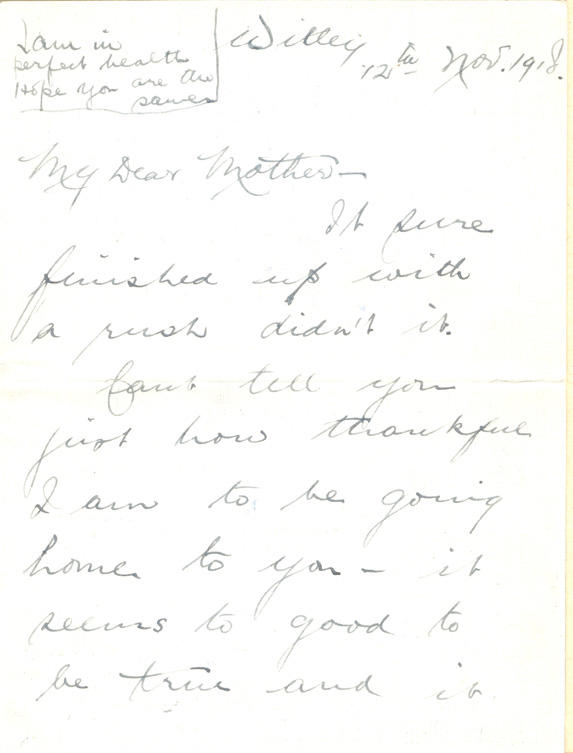 I am in
perfect health
Hope you are the
same
Witley
12th Nov. 1918.
My Dear Mother—
It sure
finished up with
a rush didn't it.
Cant tell you
just how thankful
I am to be going
home to you — it
seems to good to
be true and it